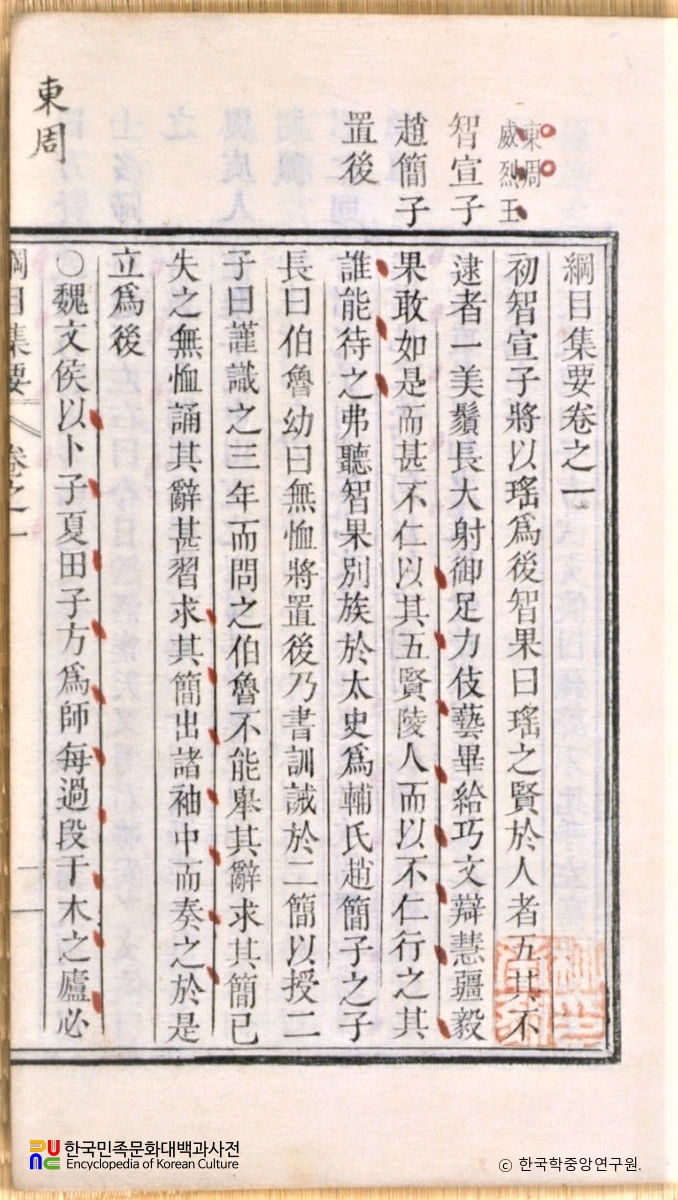 東周
威烈王
智宣子
趙簡子
置後
東周
綱目集要卷之一
初智宣子將以瑤爲後智果曰瑤之賢於人者五其不
逮者一美鬚長大射御足力伎藝畢給巧文辯慧疆毅
果敢如是而甚不仁以其五賢陵人而以不仁行之其
誰能待之弗聽智果別族於太史爲輔氏趙簡子之子
長曰伯魯幼曰無恤將置後乃書訓誡於二簡以授二
子曰謹識之三年而問之伯魯不能舉其辭求其簡已
失之無恤誦其辭甚習求其簡出諸袖中而奏之於是
立爲後
○魏文侯以卜子夏田子方爲師每過段干木之廬必
綱目集要 卷之一 一
한국민족문화대백과사전
Encyclopedia of Korean Culture
ⓒ 한국학중앙연구원.